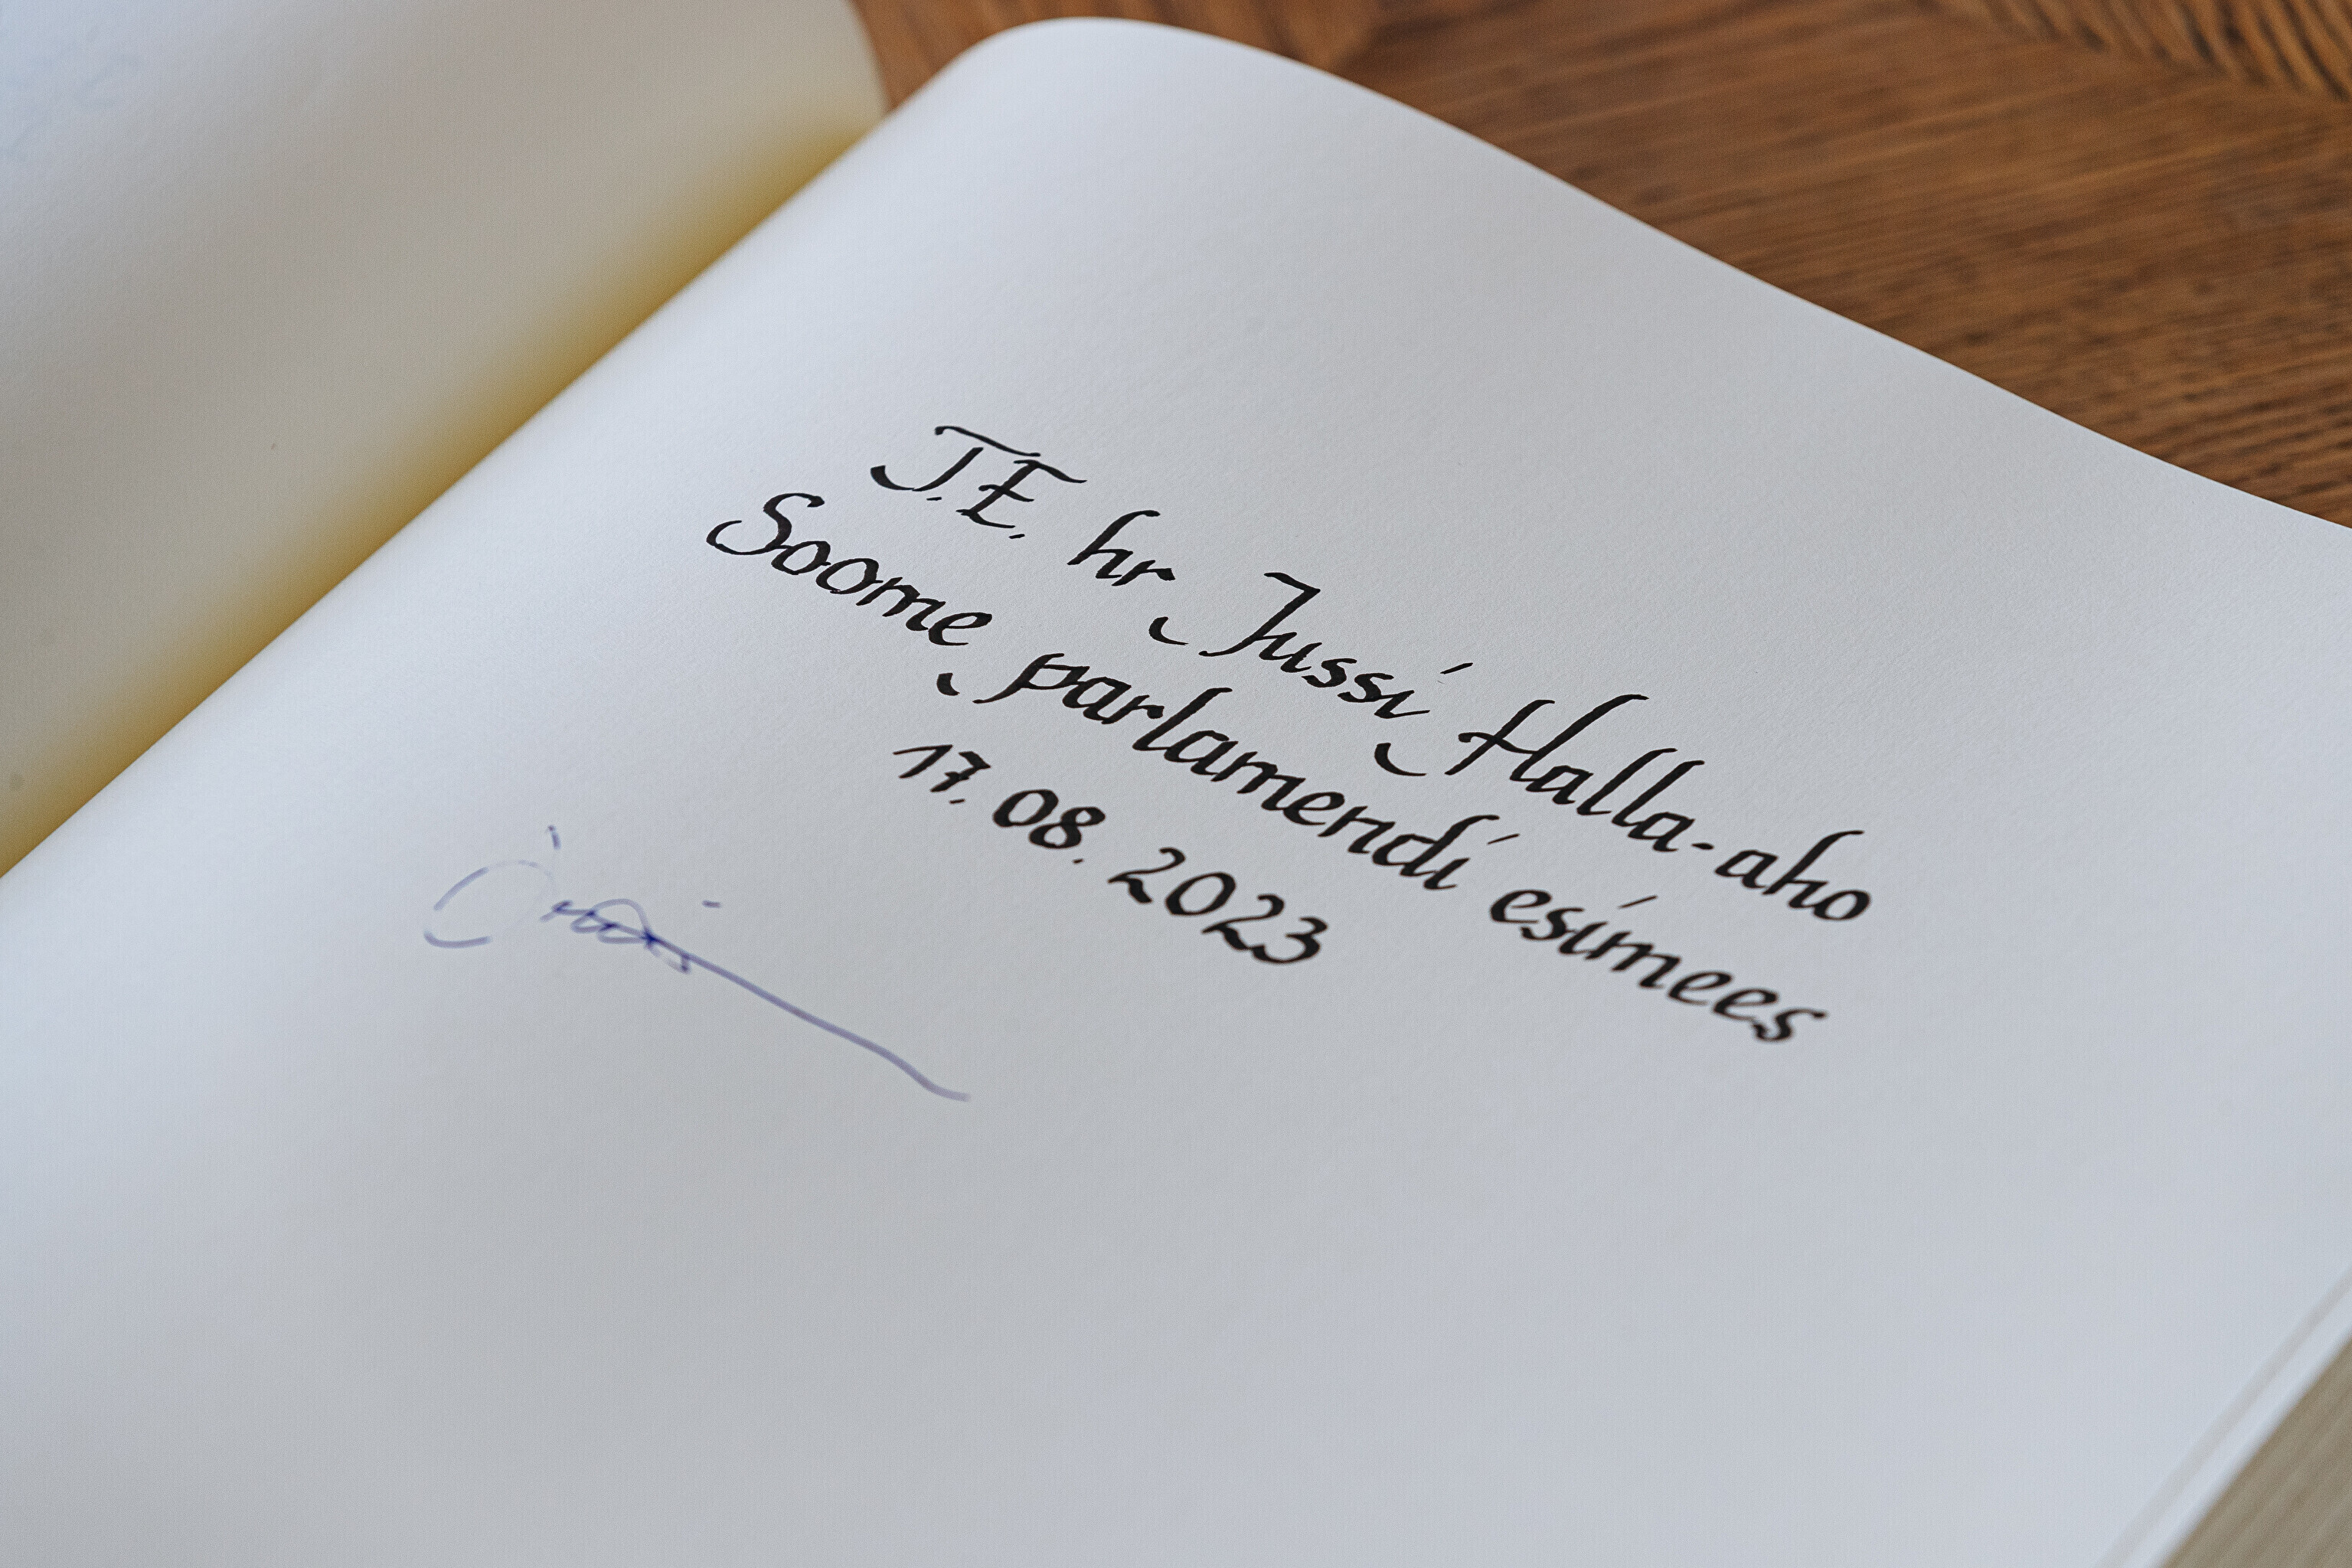 T.E. hr Jussi Halla-aho
Soome parlamendi esimees
17. 08. 2023